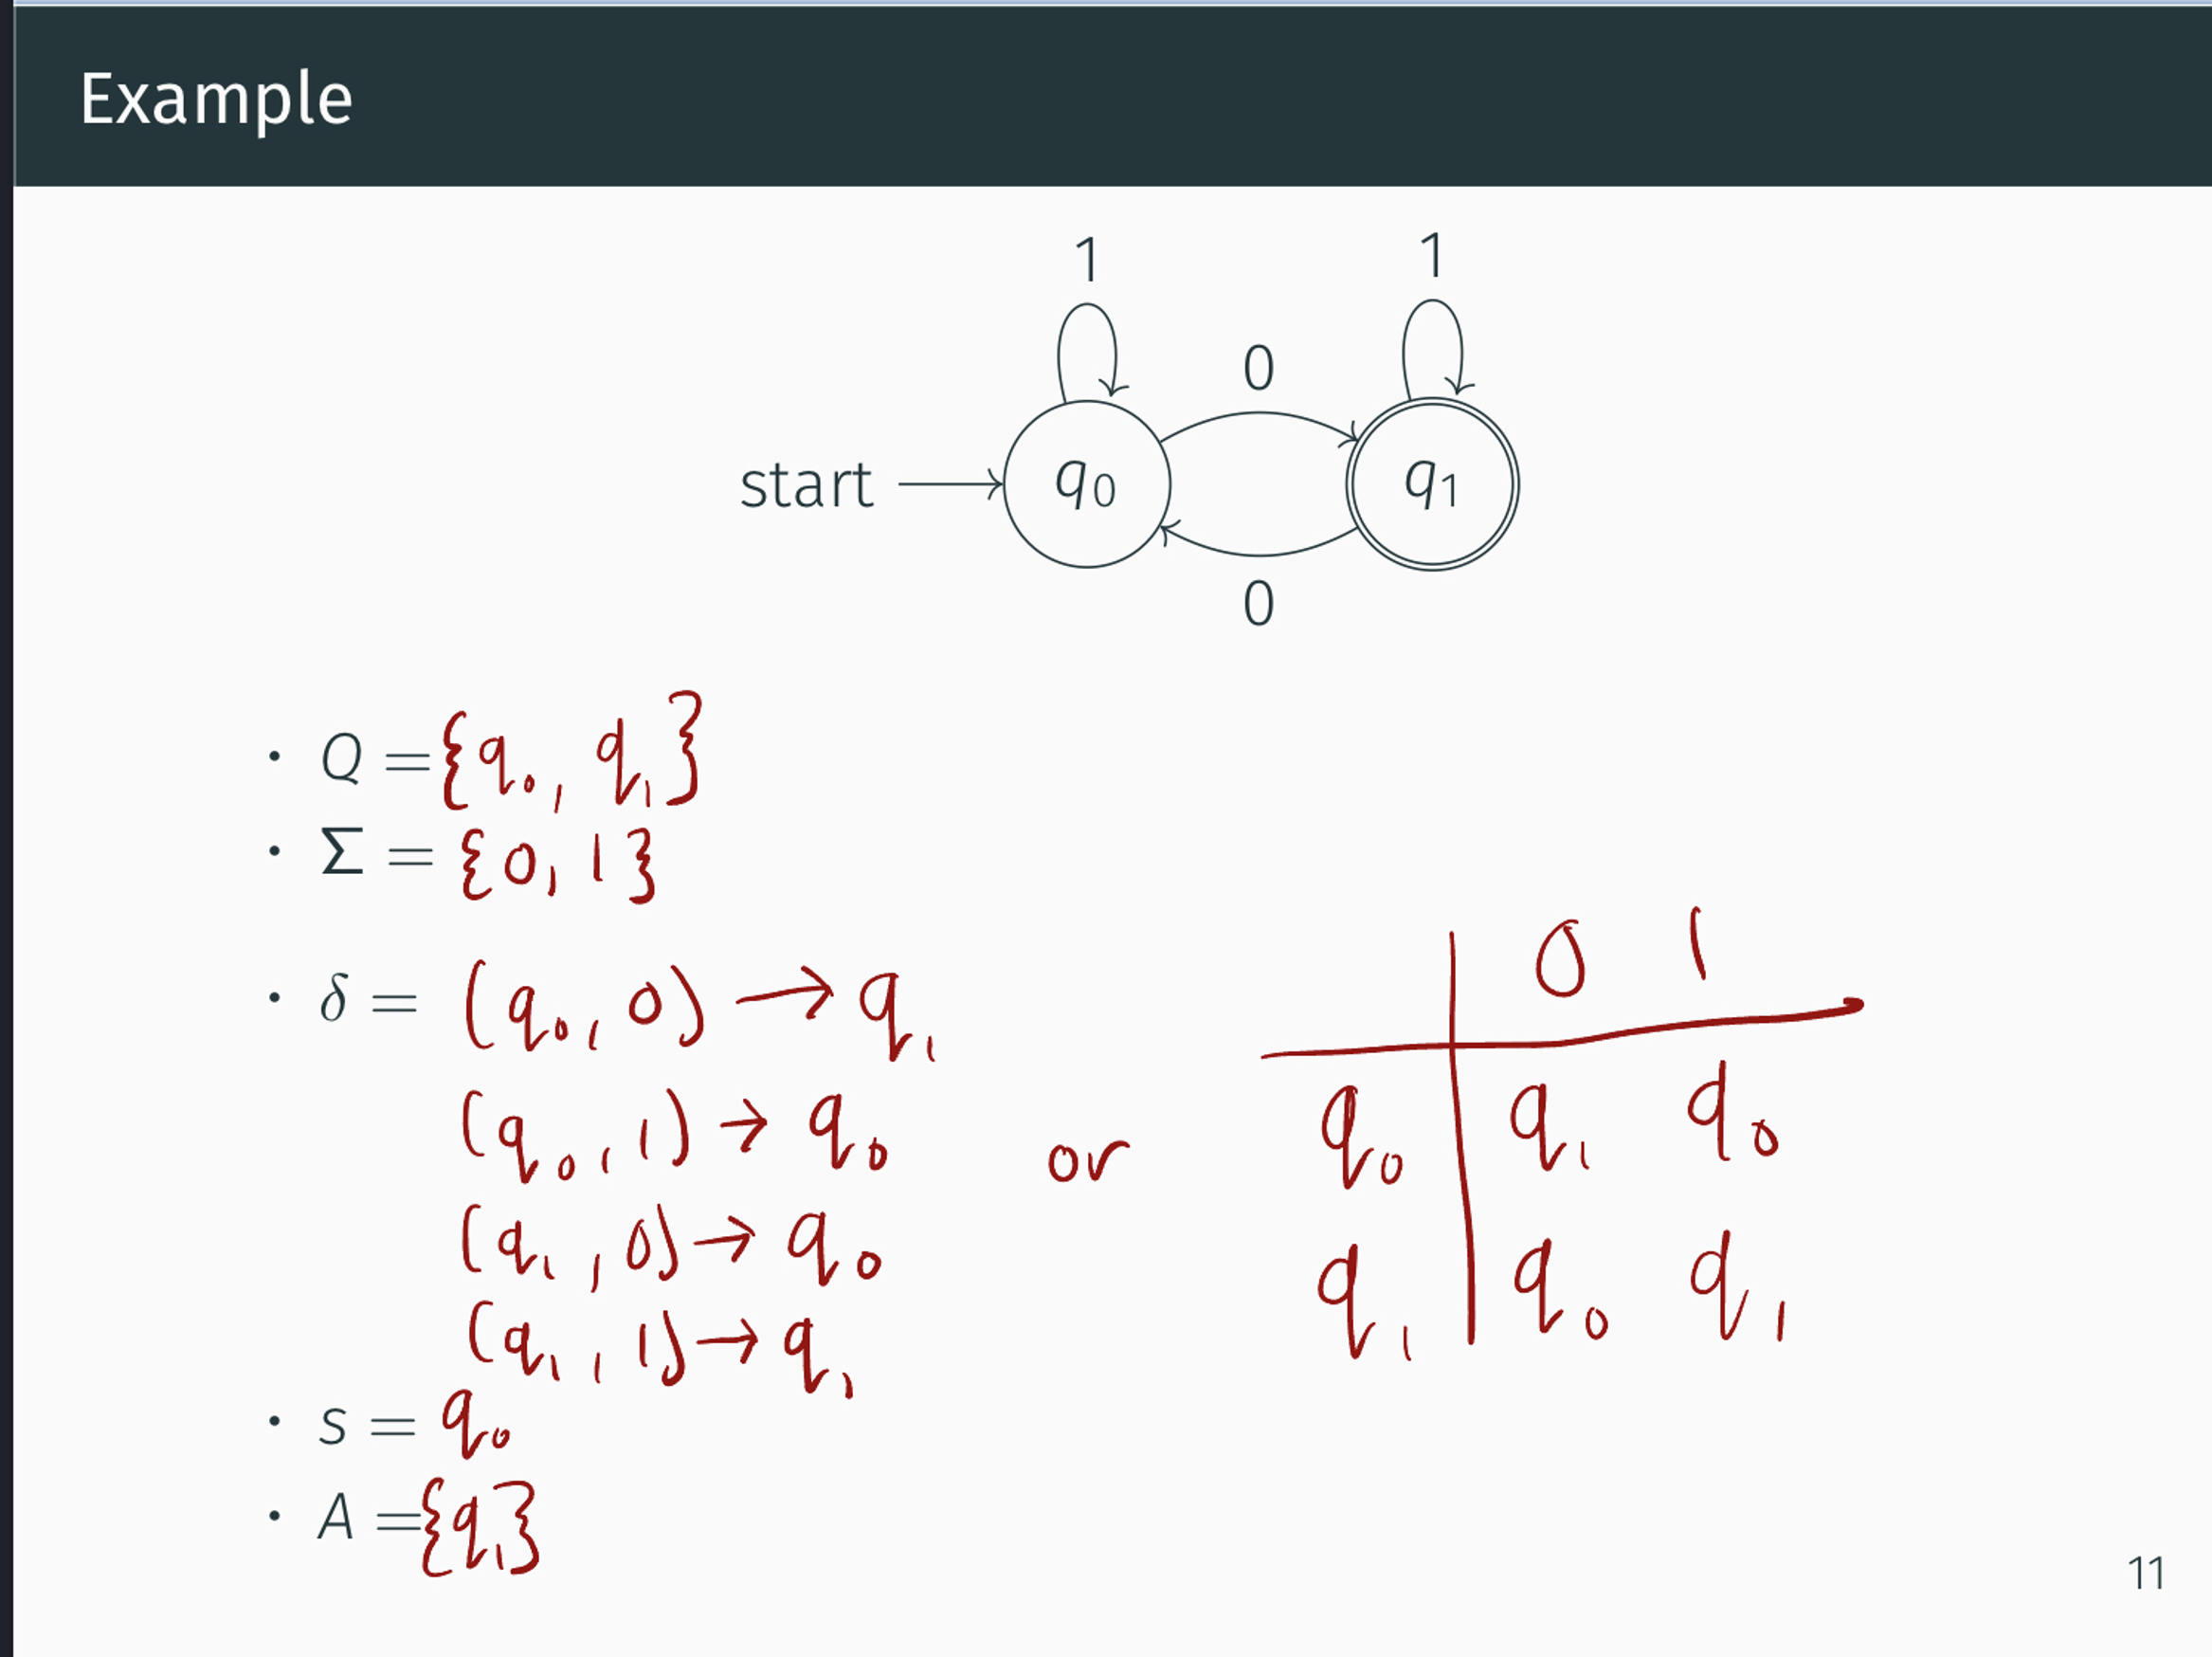 Example
1 1
0
start q₀ q₁
0
• Q = {q₀, q₁}
• Σ = {0, 1}
• δ = (q₀, 0) → q₁
(q₀, 1) → q₀
(q₁, 0) → q₀
(q₁, 1) → q₁
or
0 1
q₀ q₁ q₀
q₁ q₀ q₁
• s = q₀
• A = {q₁}
11